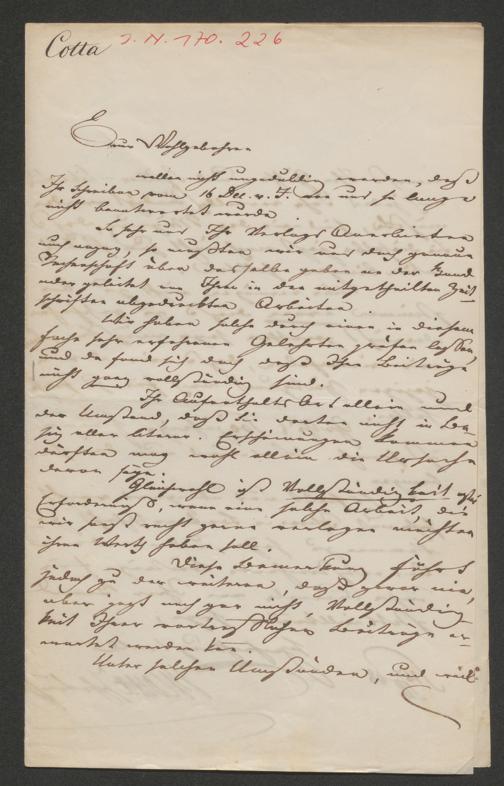 Cotta J. N. 170. 226
Euer Wohlgeboren
wollen nicht ungeduldig werden, daß
Ihr Schreiben vom 16 Dec. v. J. von uns so lange
nicht beantwortet wurde.
So sehr uns Ihr Verlags Anerbieten
auch, so mußten wir uns doch genaue
Rechenschaft über dasselbe geben an der Hand
oder geleitet von Ihren in den mitgetheilten Zeit
schriften abgedruckten Arbeiten.
Wir haben solche durch einen in diesem
Fache sehr erfahrenen Gelehrten prüfen lassen
und da fand sich doch daß Ihre Beiträge
nicht ganz vollständig sind.
Ihr Aufenthalts Ort allein und
der Umstand, daß Sie dorten nicht in Be
sitz aller literar. Erscheinungen kommen
dürften mag wohl allein die Ursache
davon sein.
Gleichwohl ist Vollständigkeit
Erforderniß, wenn eine solche Arbeit, die
wir sonst recht gerne verlegen möchten
ihren Werth haben soll.
Diese Bemerkung führt
jedoch zu der weiteren, daß zwar nie,
aber jetzt noch gar nicht, Vollständig-
keit Ihrer vortrefflichen Beiträge er-
wartet werden kan.
Unter solchen Umständen, und weil